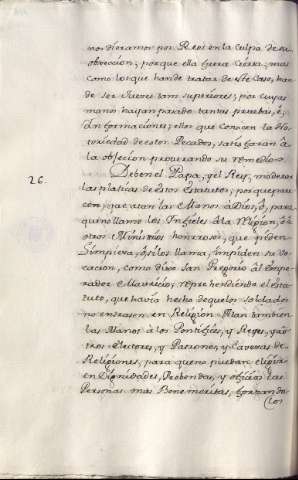 nos dieramos por Reos en la Culpa de su
obreccion; porque ella fuera Cierta; mas
como los que han de tratar de este Caso, han
de ser Jueces tam superiores; por cuyas
manos haijan pasado tantas pruebas, é
informaciones; ellos que conocen la No-
toriedad de estos Pecados, satisfaran à
la objecion procurando su remedio.
26. Deben el Papa, y el Rey, moderar
las platicas de estos Estatutos; porque pare-
cen, que atan las Manos à Dios, ó, para
que no llame los Infieles à la Religion, ó à
otros Ministerios honrrosos, que piden
Limpieza, ó si los llama, impiden su Vo-
cacion, como dixo San Gregorio al Empe-
rador Mauricio, reprehendiendole el esta-
tuto, que havia hecho de que los soldados
no entrasen en Religion. Atan tambien
las Manos à los Pontifices, y Reyes, y à
otros Electores, y Patronos, y Cavezas de
Religiones, para que no puedan elegir
en Dignidades, Prebendas, y oficios las
Personas mas Benemeritas, forzando
los